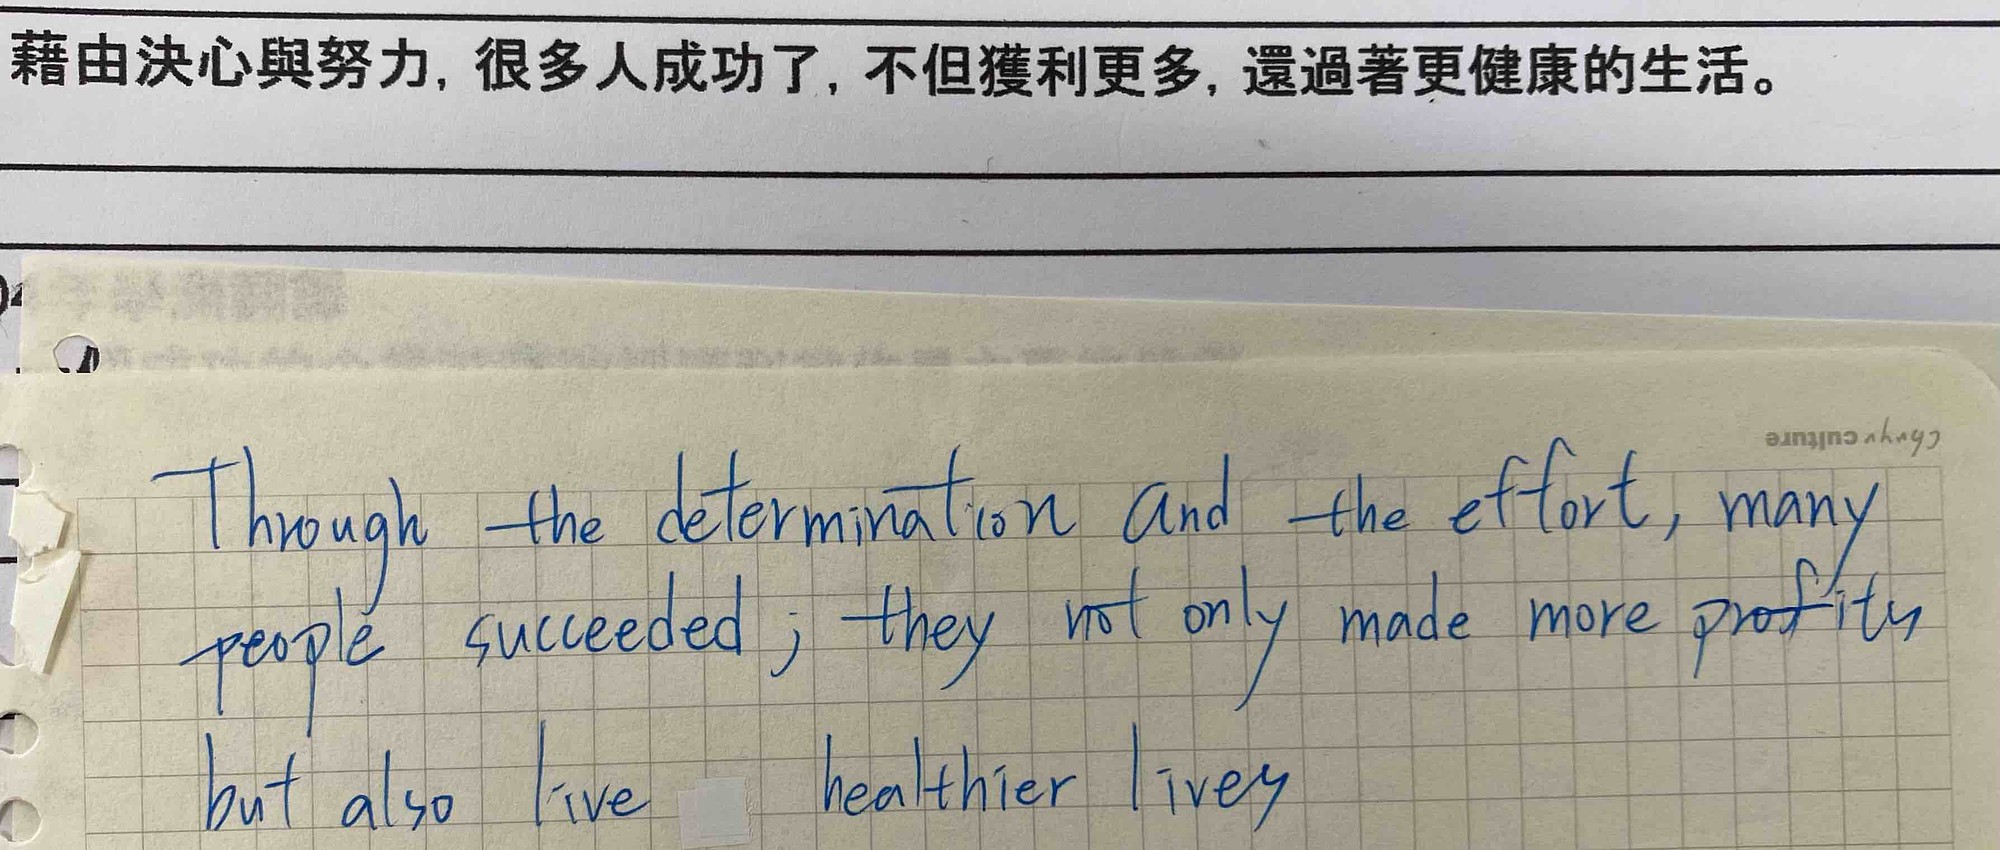 藉由決心與努力, 很多人成功了, 不但獲利更多, 還過著更健康的生活。
culture
Through the determination and the effort, many
people succeeded; they not only made more profits
but also live healthier lives